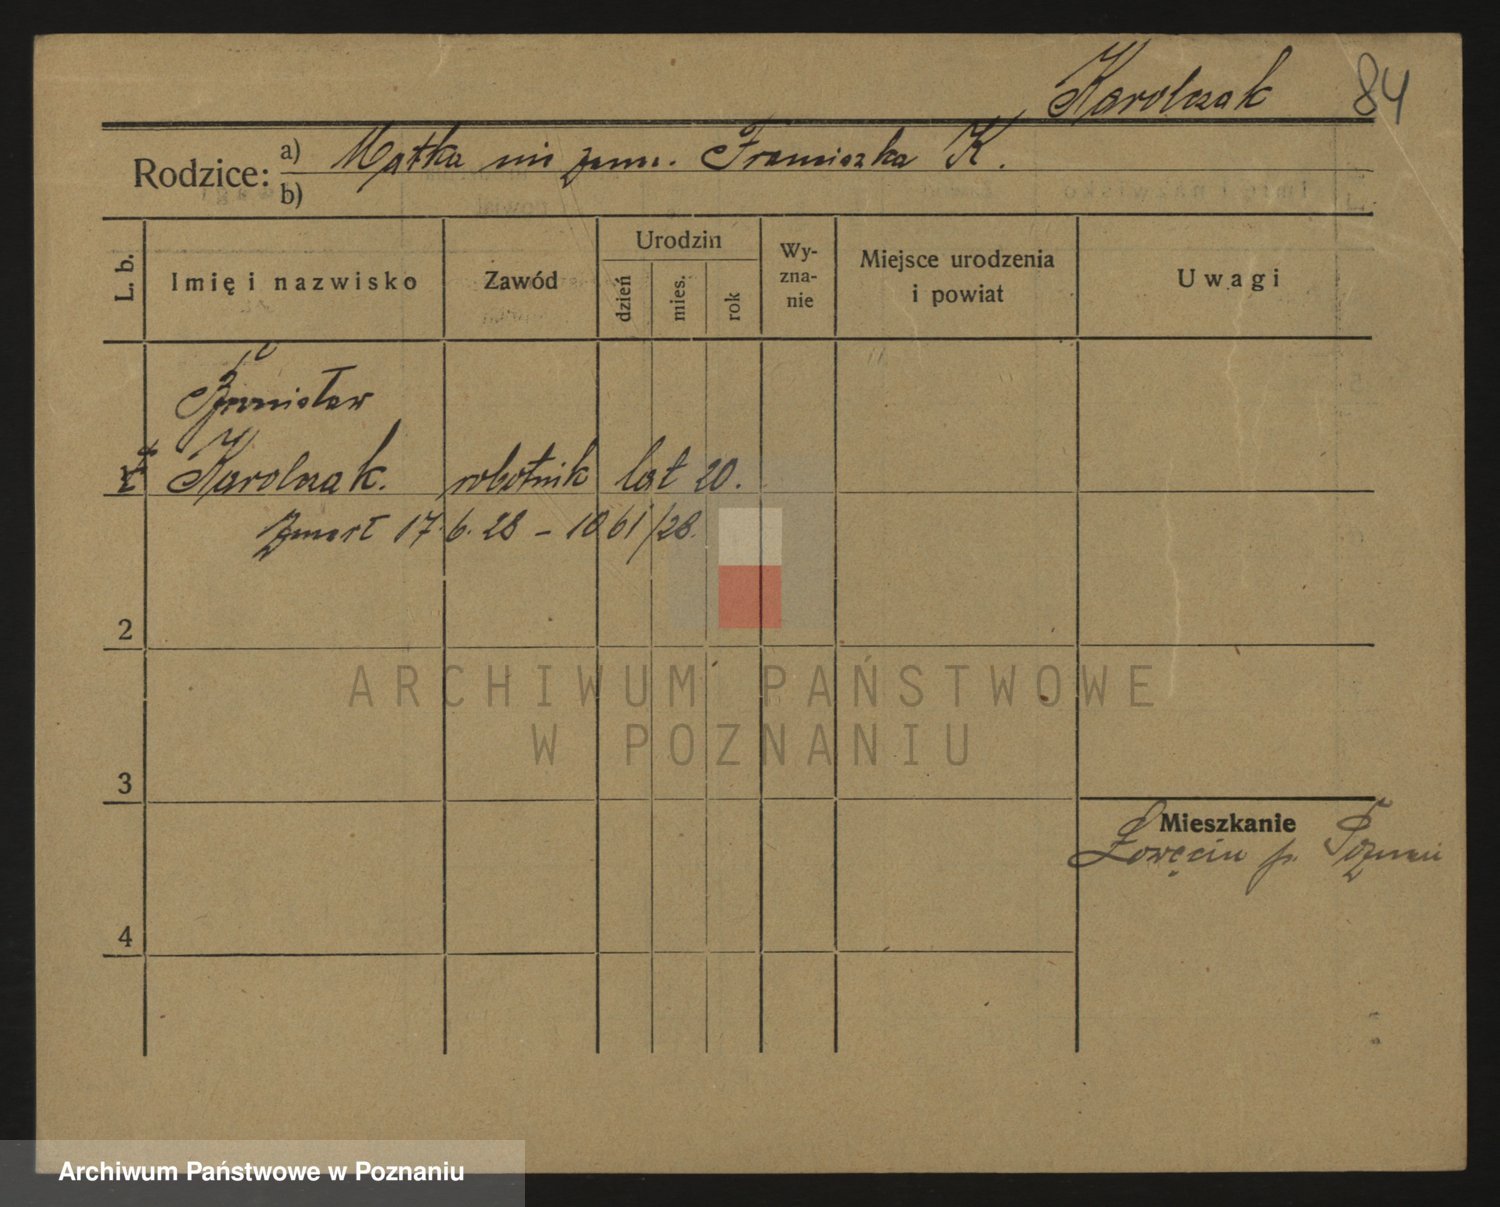 Karolczak 84
Rodzice: a) Matka nie zam. Franciszka K.
b)
L. b. Imię i nazwisko Zawód Urodzin dzień mies. rok Wy-zna-nie Miejsce urodzenia i powiat Uwagi
Karolczak. robotnik lat 20.
Zmarł 17.6.28 – 1061/28.
2
ARCHIWUM PAŃSTWOWE
W POZNANIU
3
Mieszkanie
Łowęcin p. Poznań
4
Archiwum Państwowe w Poznaniu